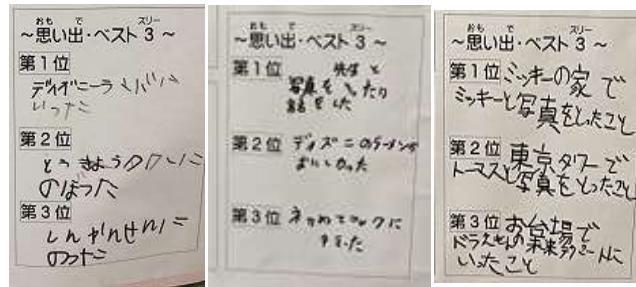 ～思い出・ベスト３～
おも で スリー
第１位
いった
第２位
とうきょうタワーに
のぼった
第３位
しんかんせんに
のった
～思い出・ベスト３～
おも で スリー
第１位 先生と
写真をとったり
話をした
第２位 ディズニーのラーメンが
おいしかった
第３位
～思い出・ベスト３～
おも で スリー
第１位 ミッキーの家で
ミッキーと写真をとったこと
第２位 東京タワーで
トーマスと写真をとったこと
第３位 お台場で
ドラえもんの未来デパートに
いったこと